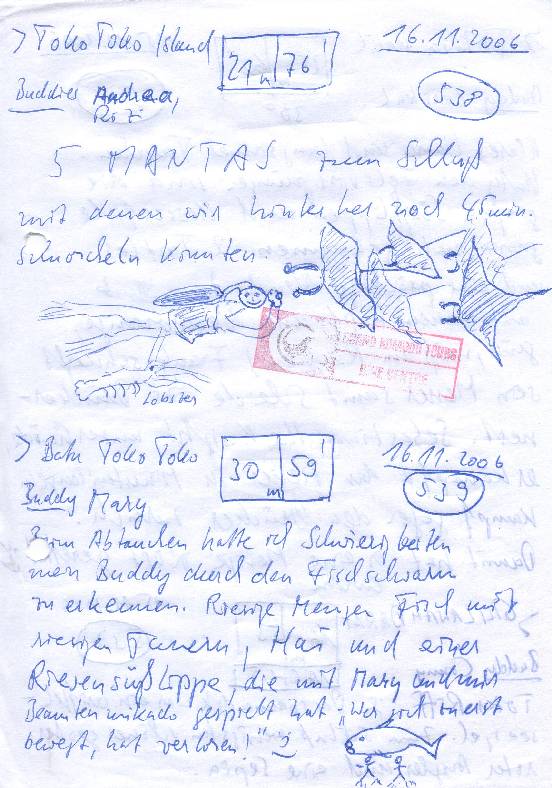 > Toko Toko Island 21 m 76' 16.11.2006
Buddies Andrea, 538
Rozi
5 MANTAS zum Schluß
mit denen wir hinterher noch 45 min.
Schnorcheln konnten.
GRAND KOMODO TOURS
DIVE CENTRE
Lobster
> Batu Toko Toko 30 m 59' 16.11.2006
Buddy Mary 539
Beim Abtauchen hatte ich Schwierigkeiten
mein Buddy durch den Fischschwarm
zu erkennen. Riesige Mengen Fisch mit
riesigen Tunern, Hai und einer
Riesensüßlippe, die mit Mary und mir
Beamtenmikado gespielt hat "Wer sich zuerst
bewegt, hat verloren!"